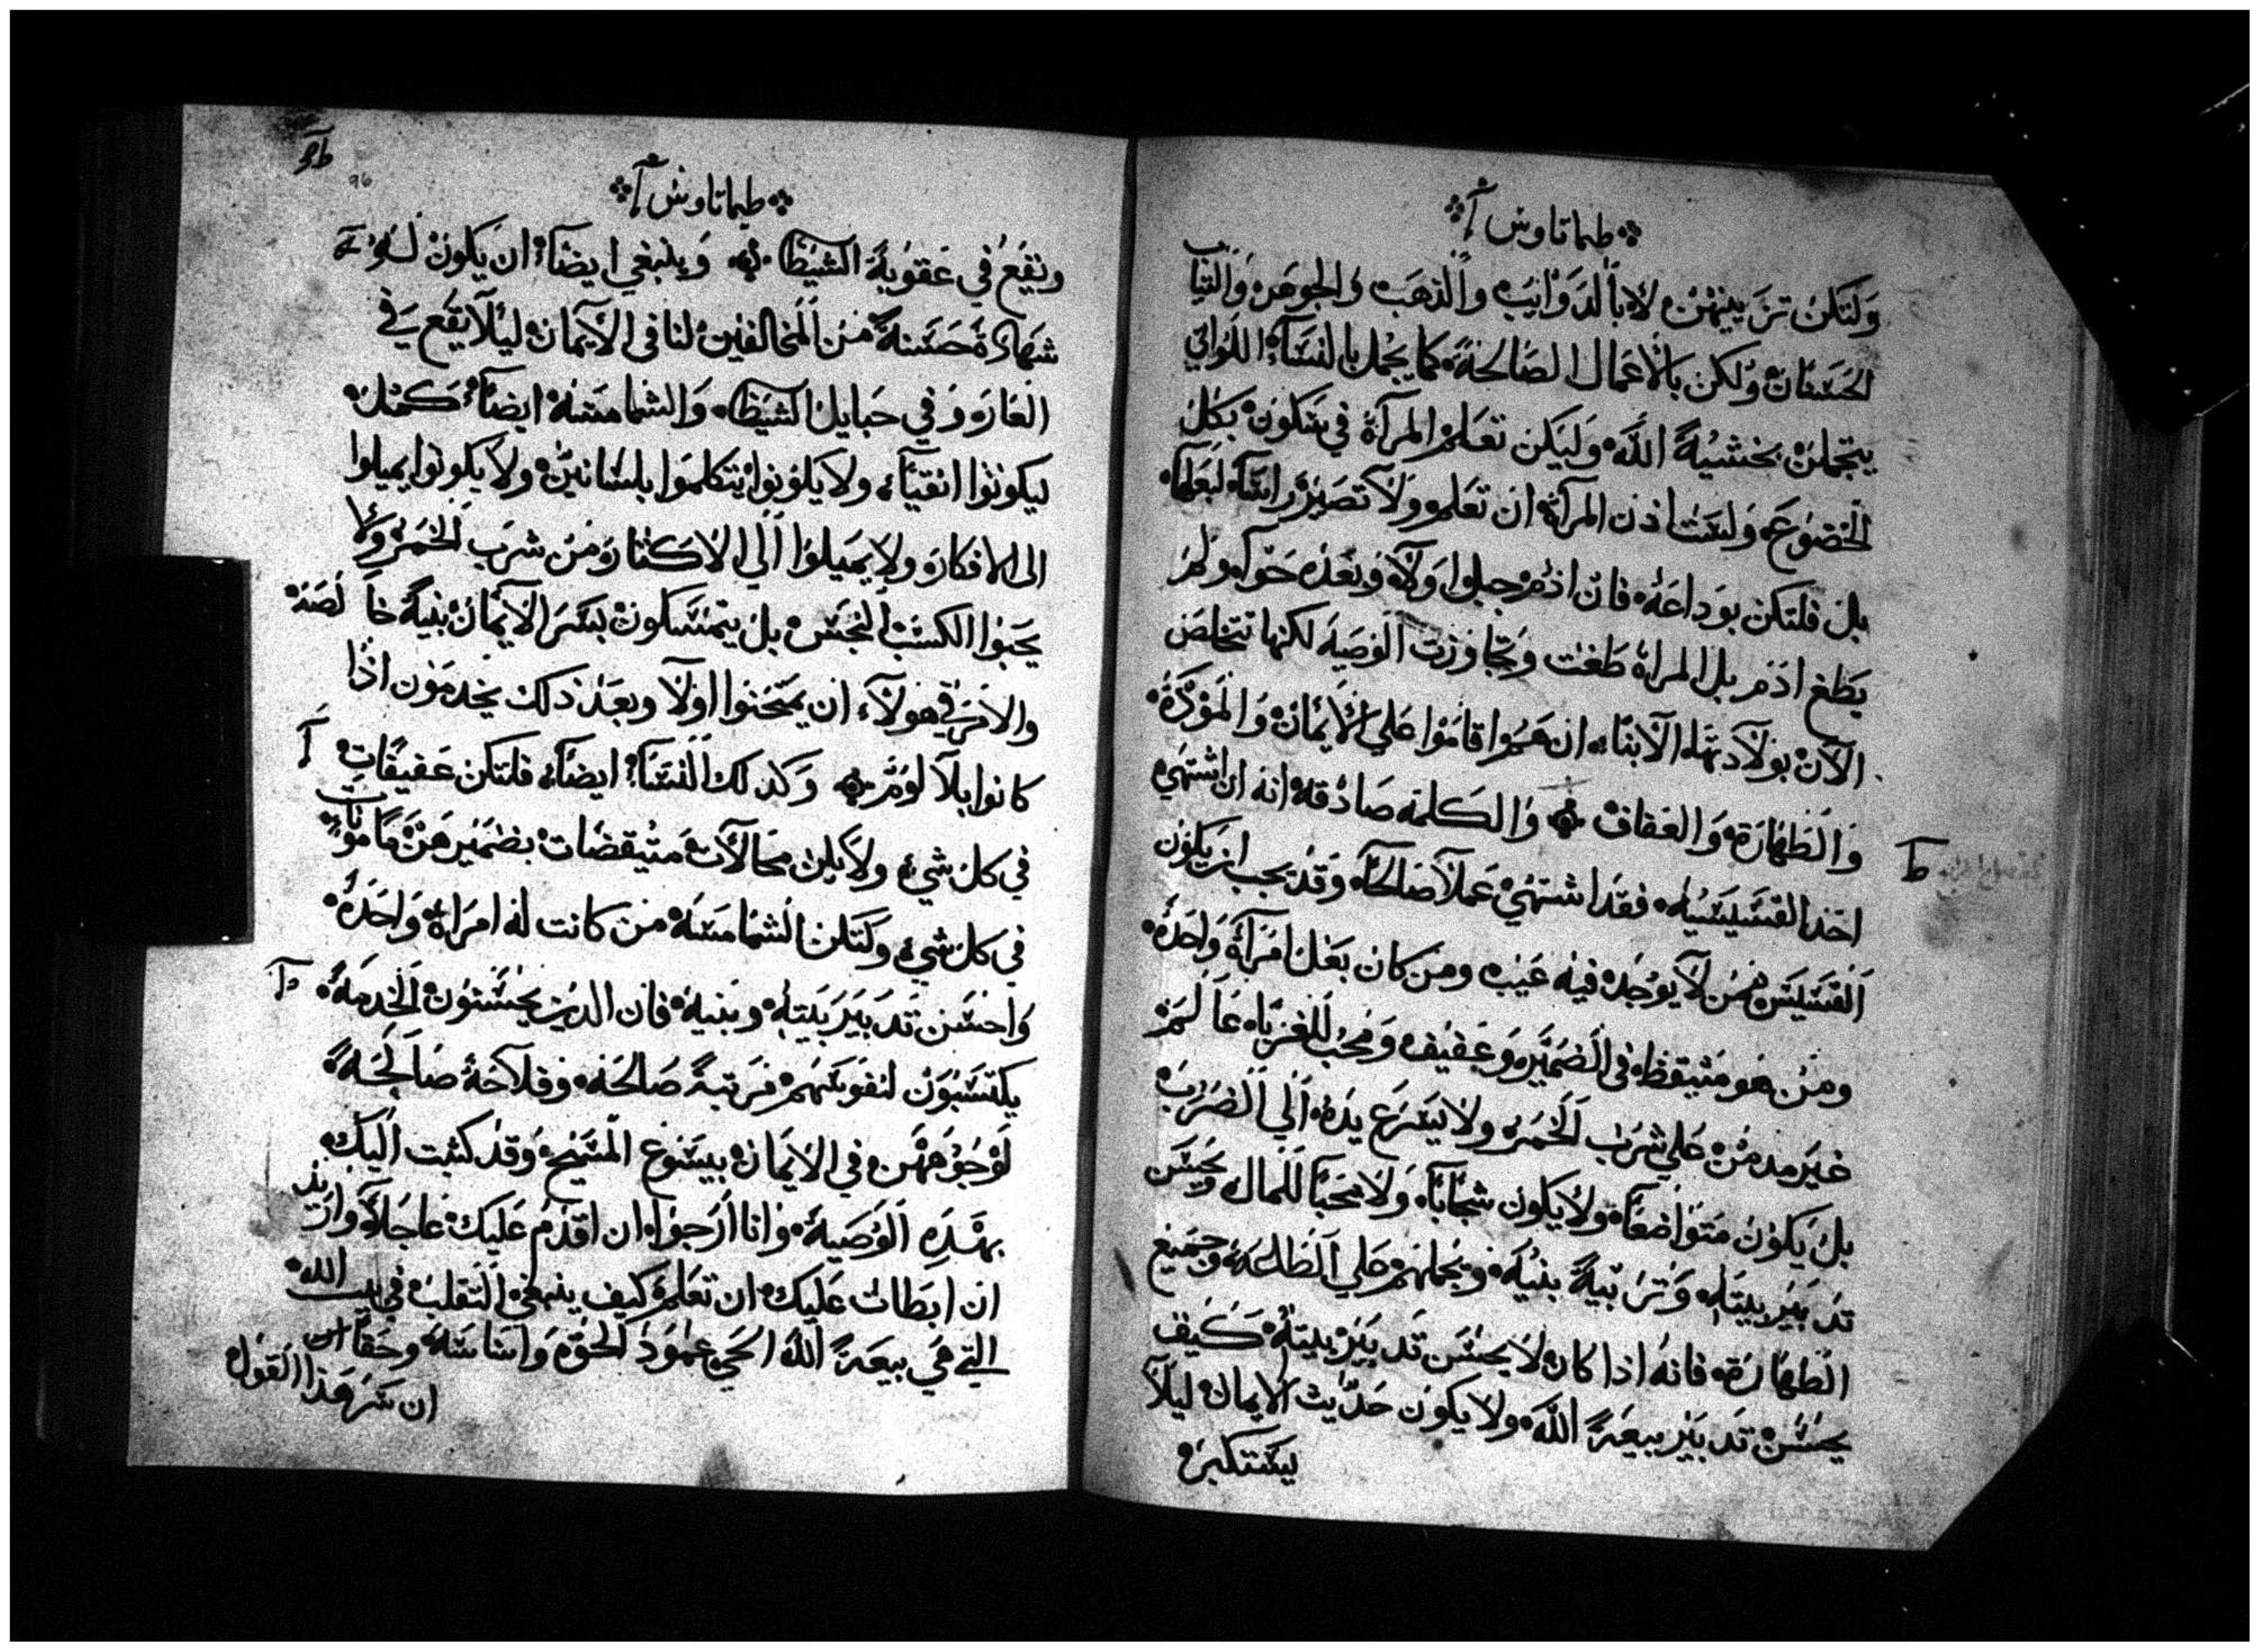 طيماتاوس آ
ولتكن تزيينهن لا بالدوايب والذهب والجوهر والثياب
الحسان ولكن بالاعمال الصالحة كما يجمل بالنساء اللواتي
يتجملن بخشية الله وليكن تعلم المراة في سكون بكل
الخضوع ولست اذن المراة ان تعلم ولا تصير راسا لبعلها
بل فلتكن بوداعة فان ادم جبلوا ولا وبعده حوا ولم
يطغ ادم بل المراة طغت وتجاوزت الوصية لكنها تتخلص
الان بولادتها الابنا ان هموا قاموا علي الايمان والمودة
والطهارة والعفاف والكلمة صادقة انه ان اشتهي
احد القسيسية فقد اشتهي عملا صالحا وقد يجب ان يكون
القسيس من لا يوجد فيه عيب ومن كان بعل امراة واحدة
ومن هو متيقظ في الضمير وعفيف ومحب للغربا عالم
غير مدمن علي شرب الخمر ولا يسرع يده الي الضرب
بل يكون متواضعا ولا يكون شجابا ولا محبا للمال ويحسن
تدبير بيته وتربية بنيه ويجملهم علي الطاعة وجميع
الطهارة فانه اذا كان لا يحسن تدبير بيته كيف
يحسن تدبير بيعة الله ولا يكون حديث الايمان ليلا
يستكبر
طيماتاوس آ
96
ويقع في عقوبة الشيطان وينبغي ايضا ان يكون له
شهادة حسنة من المخالفين لنا في الايمان ليلا يقع في
العار وفي حبايل الشيطان والشمامسة ايضا كمثل
ليكونوا انقيا ولا يكونوا يتكلموا بلسانين ولا يكونوا يميلوا
الي الافكار ولا يميلوا الي الاكثار من شرب الخمر ولا
يحبوا الكسب النجس بل يتمسكون بسر الايمان بنية خالصة
والامر في هولاء ان يمتحنوا اولا وبعد ذلك يخدمون اذا
كانوا بلا لوم وكذلك النسا ايضا فلتكن عفيفات
في كل شي ولا يكن محالات متيقضات بضميرهن مامونات
في كل شي ولتكن الشمامسة من كانت له امراة واحدة
واحسن تدبير بيته وبنيه فان الدين يحسنون الخدمة
يكتسبون لنفوسهم مرتبة صالحة وفلاحة صالحة
لوجوههن في الايمان بيسوع المسيح وقد كتبت اليك
بهذه الوصية وانا ارجوا ان اقدم عليك عاجلا واريد
ان ابطات عليك ان تعلم كيف ينبغي التقلب في بيت الله
التي هي بيعة الله الحي عمود الحق واساسه وحقا
ان سر هذا القول